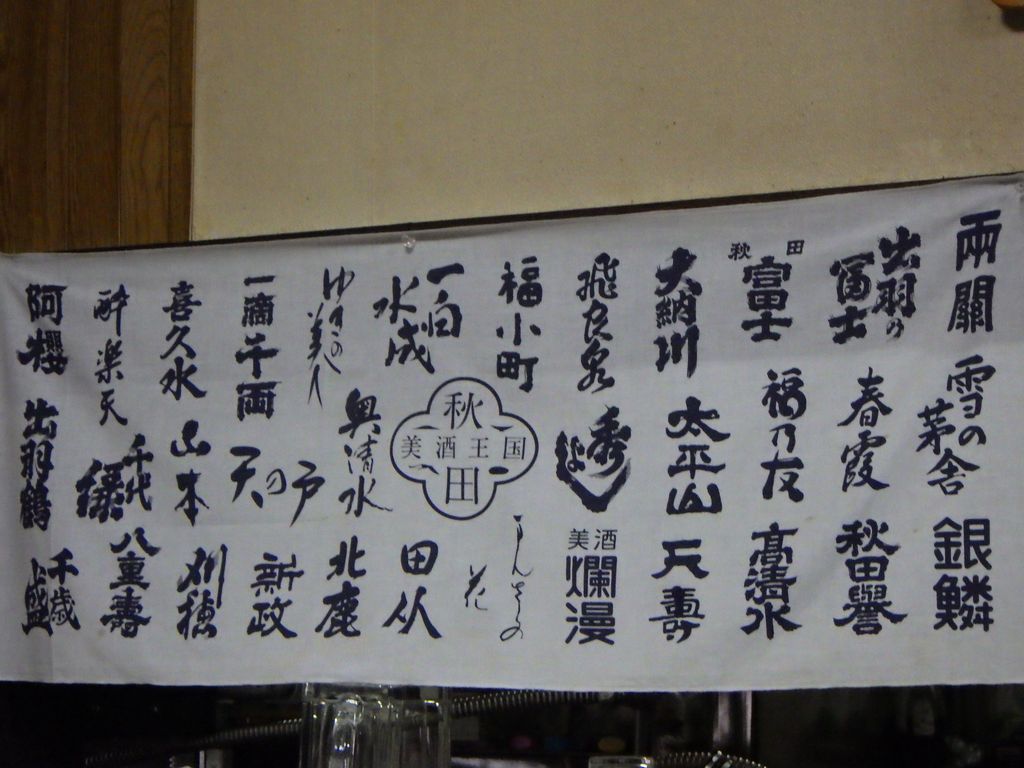 兩關
雪の茅舎
銀鱗
出羽の冨士
春霞
秋田譽
秋田富士
福乃友
高清水
大納川
太平山
天壽
飛良泉
秀よし
美酒爛漫
福小町
まんさくの花
一白水成
秋田
美酒王国
田从
ゆきの美人
奥清水
北鹿
一滴千両
天の戸
新政
喜久水
山本
刈穂
酔楽天
千代緑
八重壽
阿櫻
出羽鶴
千歳盛